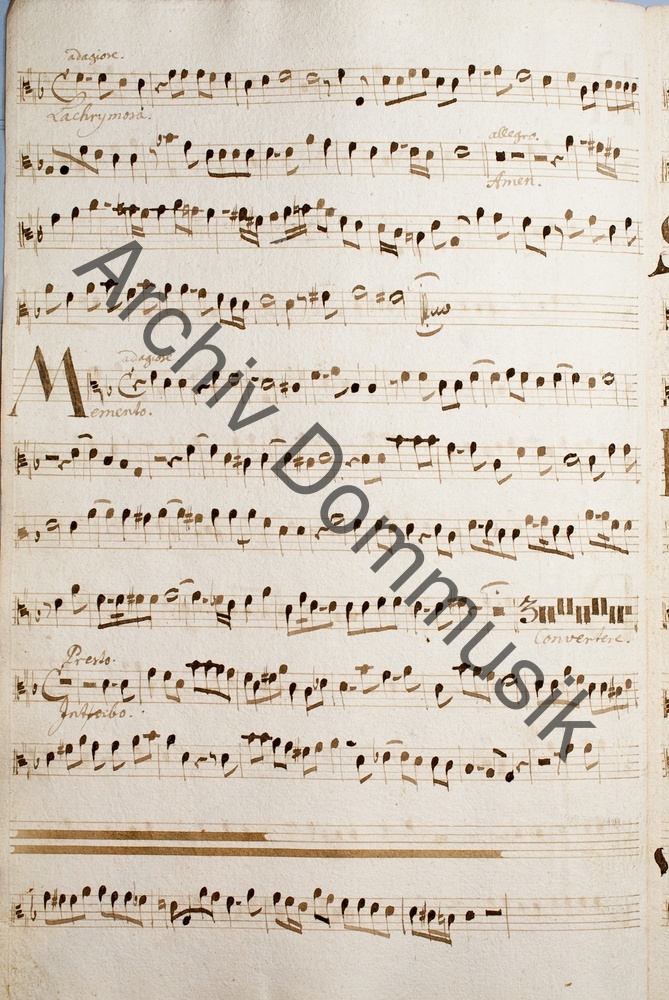 adagiose.
Lachrymosa.
allegro.
Amen.
adagiose
Memento.
3
Convertere.
Presto.
Introibo.
Archiv Dommusik